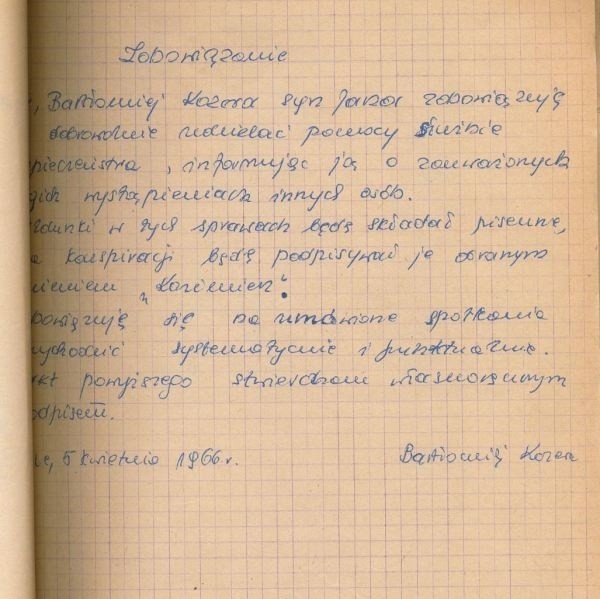 Zobowiązanie
, Bartłomiej Kozera syn Jana zobowiązuję
dobrowolnie udzielać pomocy Służbie
pieczeństwa, informując ją o zauważonych
gich wystąpieniach innych osób.
unki w tych sprawach będę składał pisemne,
konspiracji będę podpisywał je obranym
mieniem "Korzemień".
bowiązuję się na umówione spotkania
ychodzić systematycznie i punktualnie.
kt powyższego stwierdzam własnoręcznym
odpisem.
, 5 kwietnia 1966 r. Bartłomiej Kozera